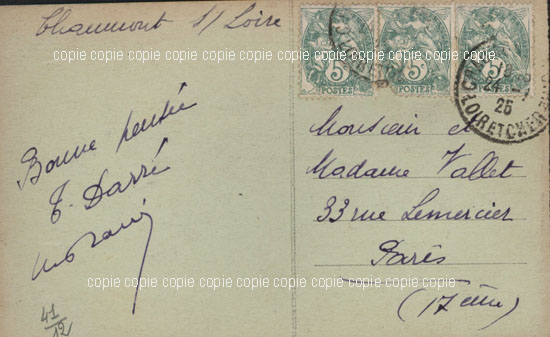 Chaumont s/ Loire
Bonne pensée
T. Darré
41/12
5 5 5
POSTES POSTES POSTES
24
25
LOIR ET CHER
Monsieur et
Madame Vallet
33 rue Lemercier
Paris
(17ème)
copie copie copie copie copie copie copie copie copie copie copie copie
copie copie copie copie copie copie copie copie copie copie copie copie
copie copie copie copie copie copie copie copie copie copie copie copie